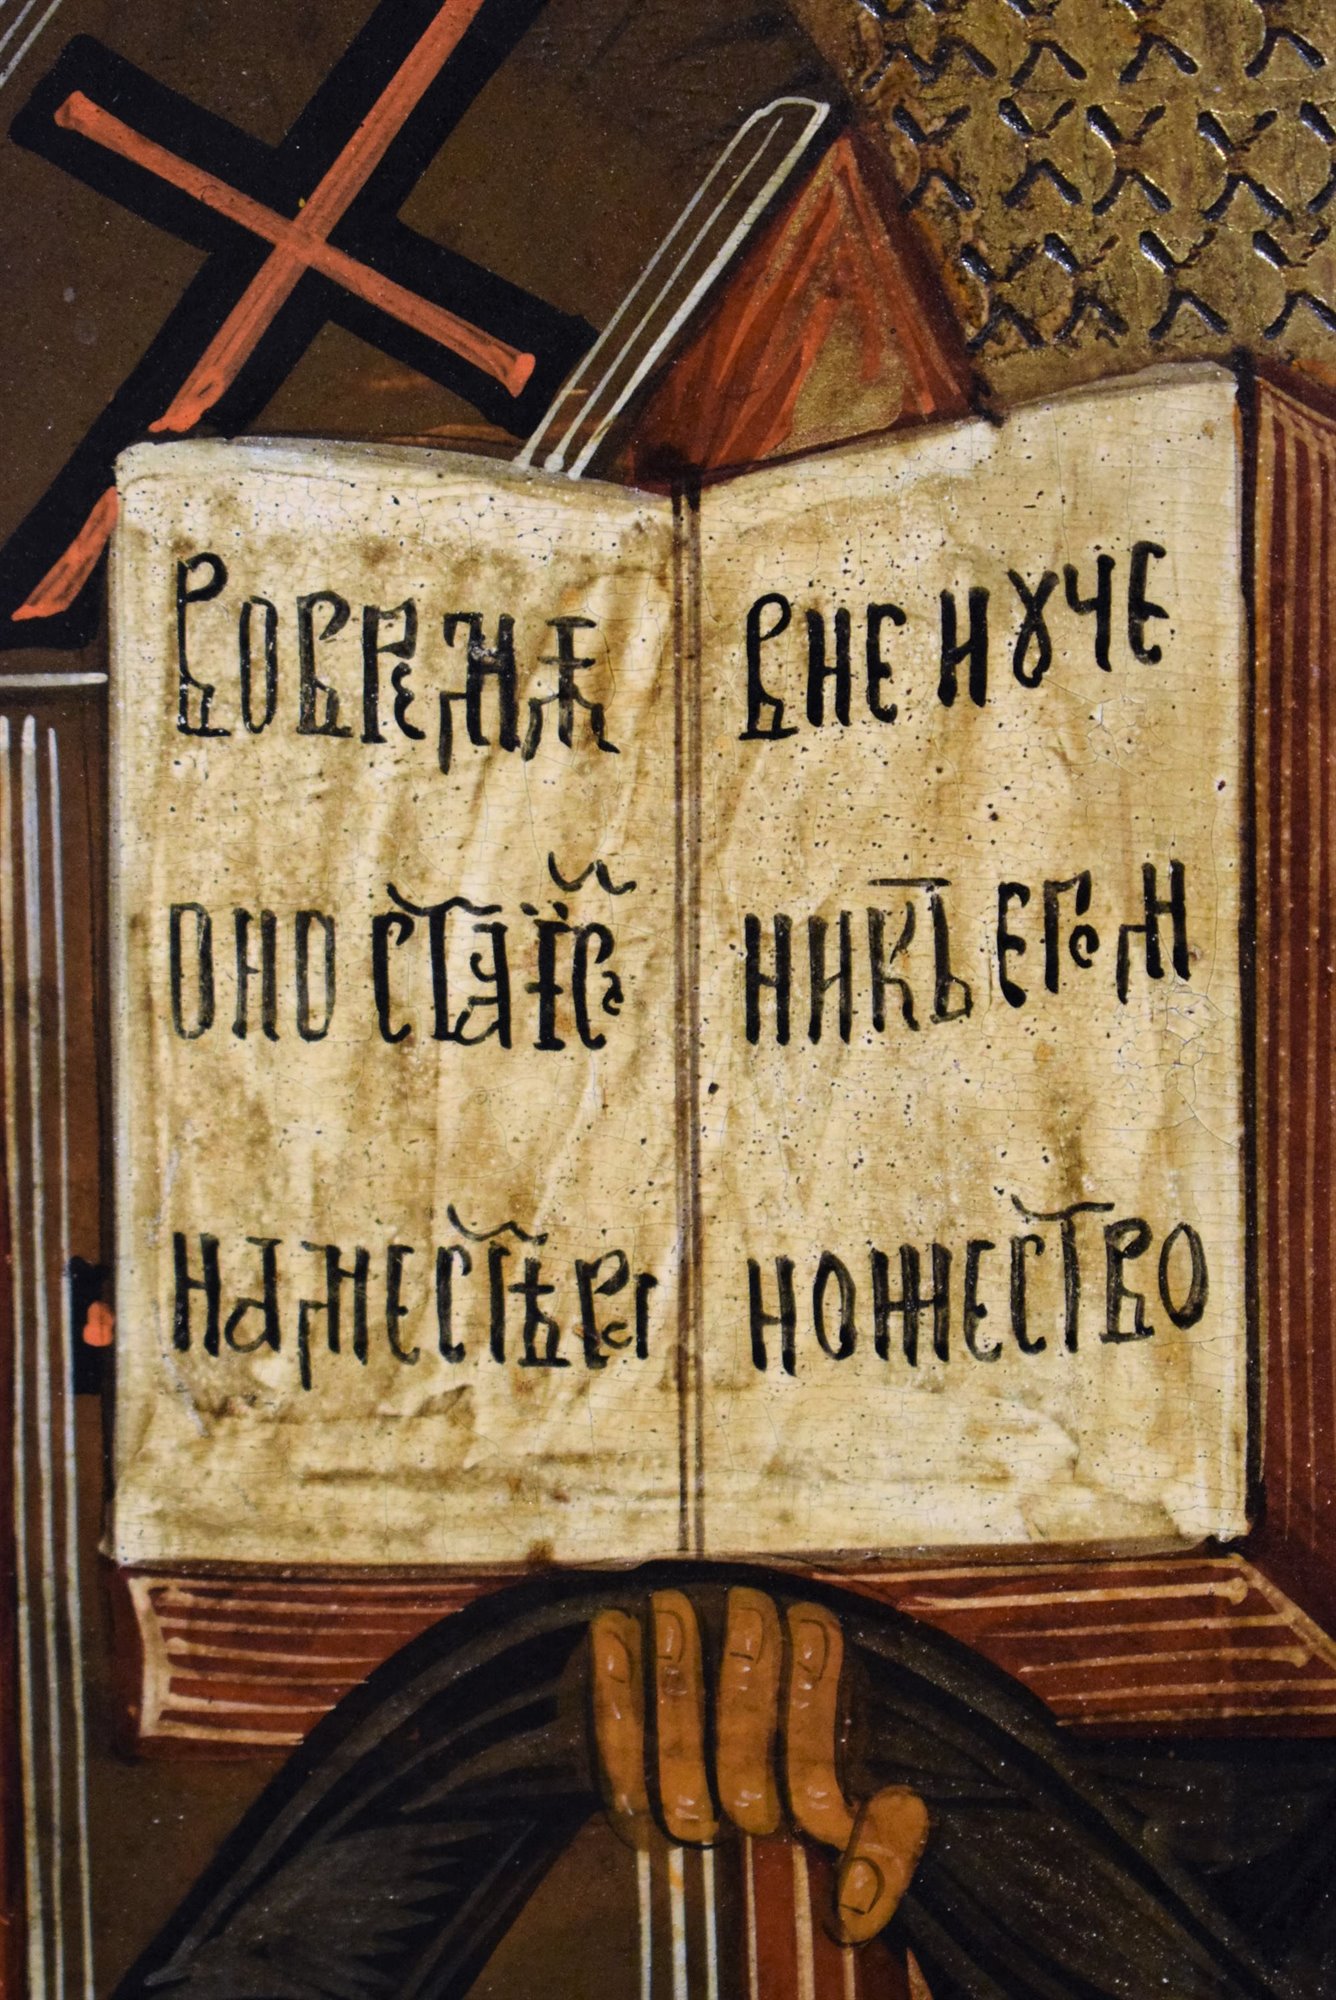 ВОВРЕМѦ
ОНО СТАІС
НАМЕСТѢРА
ВНЕ И ꙊЧЕ
НИКЪ ЕГО М
НОЖЕСТВО